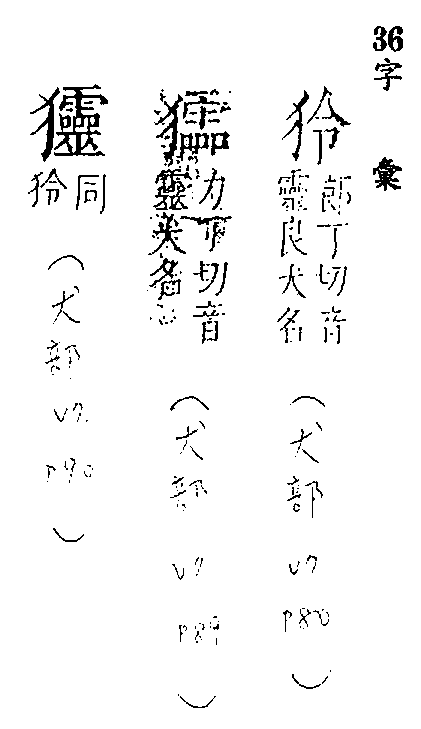 36字彙
狑
郎丁切音
靈良犬名
(犬部 v7 p80)
力丁切音
靈犬名
(犬部 v7 p89)
同
狑
(犬部 v7 p90)